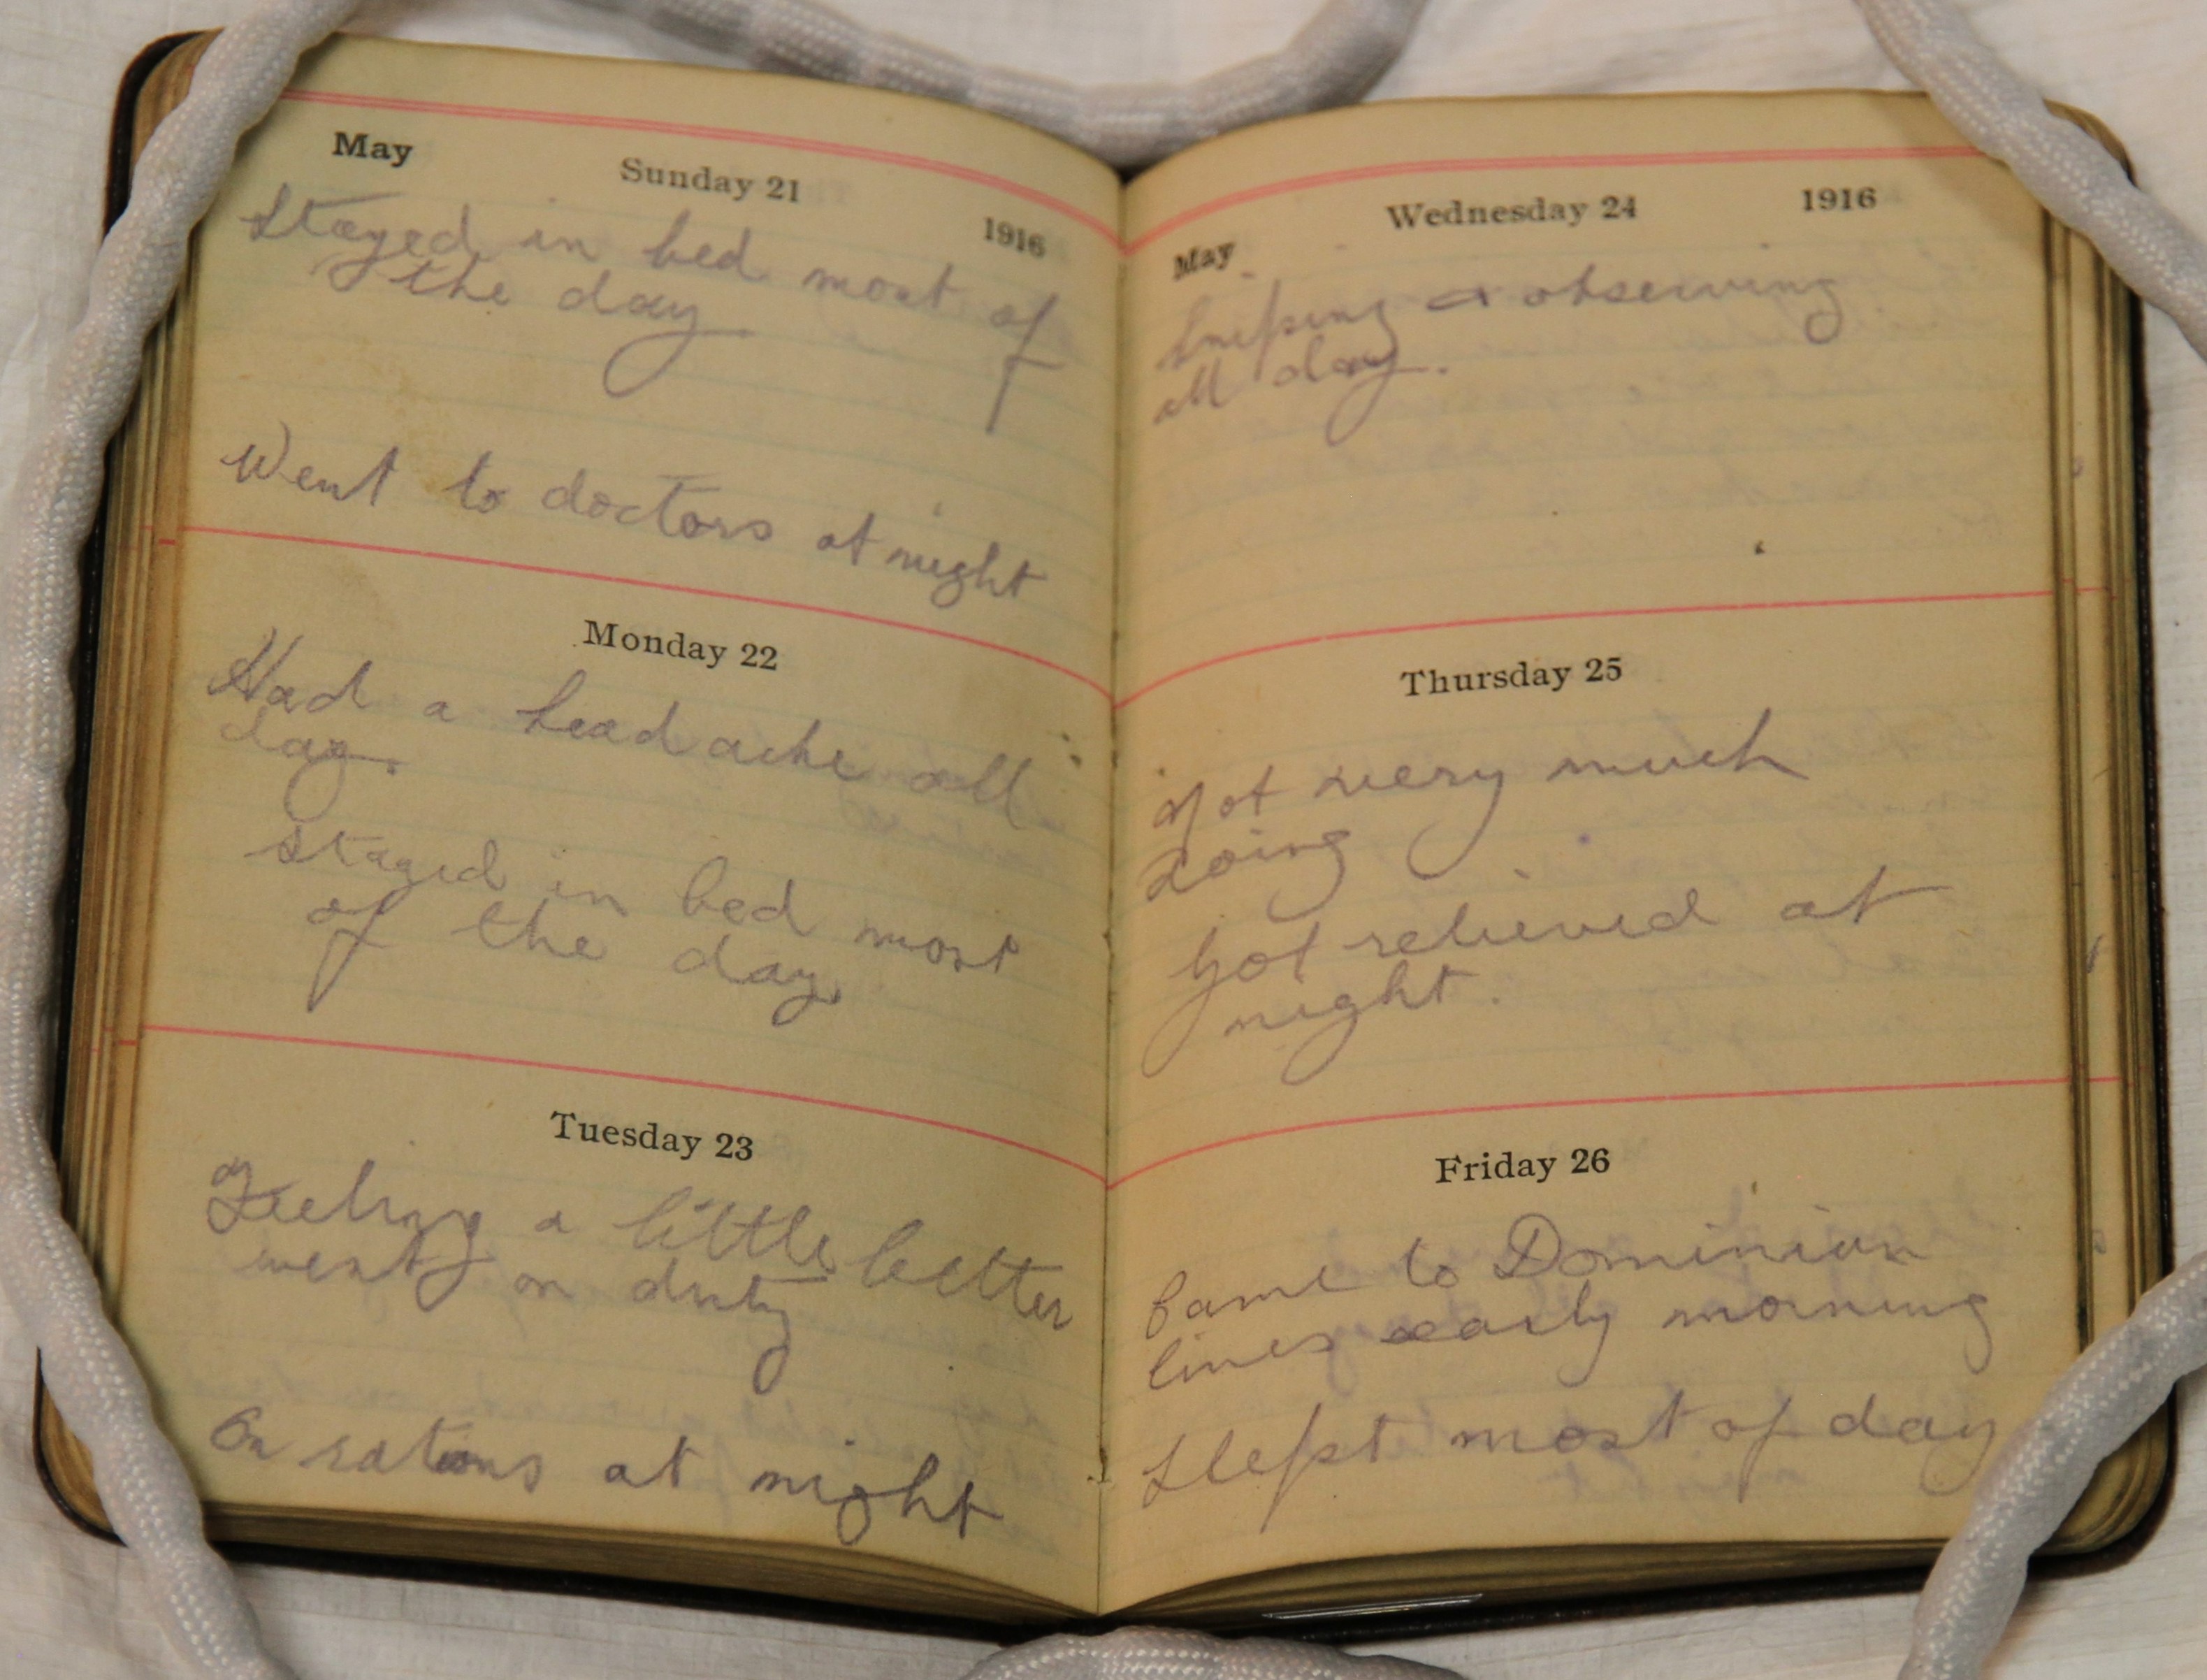 May
Sunday 21
1916
Stayed in bed most of
the day
Went to doctors at night
Monday 22
Had a head ache all
day.
Stayed in bed most
of the day
Tuesday 23
Feeling a little better
went on duty
On rations at night
Wednesday 24
1916
May
Sniping & observing
all day.
Thursday 25
Not very much
doing
Got relieved at
night.
Friday 26
Came to Dominion
lines early morning
Slept most of day